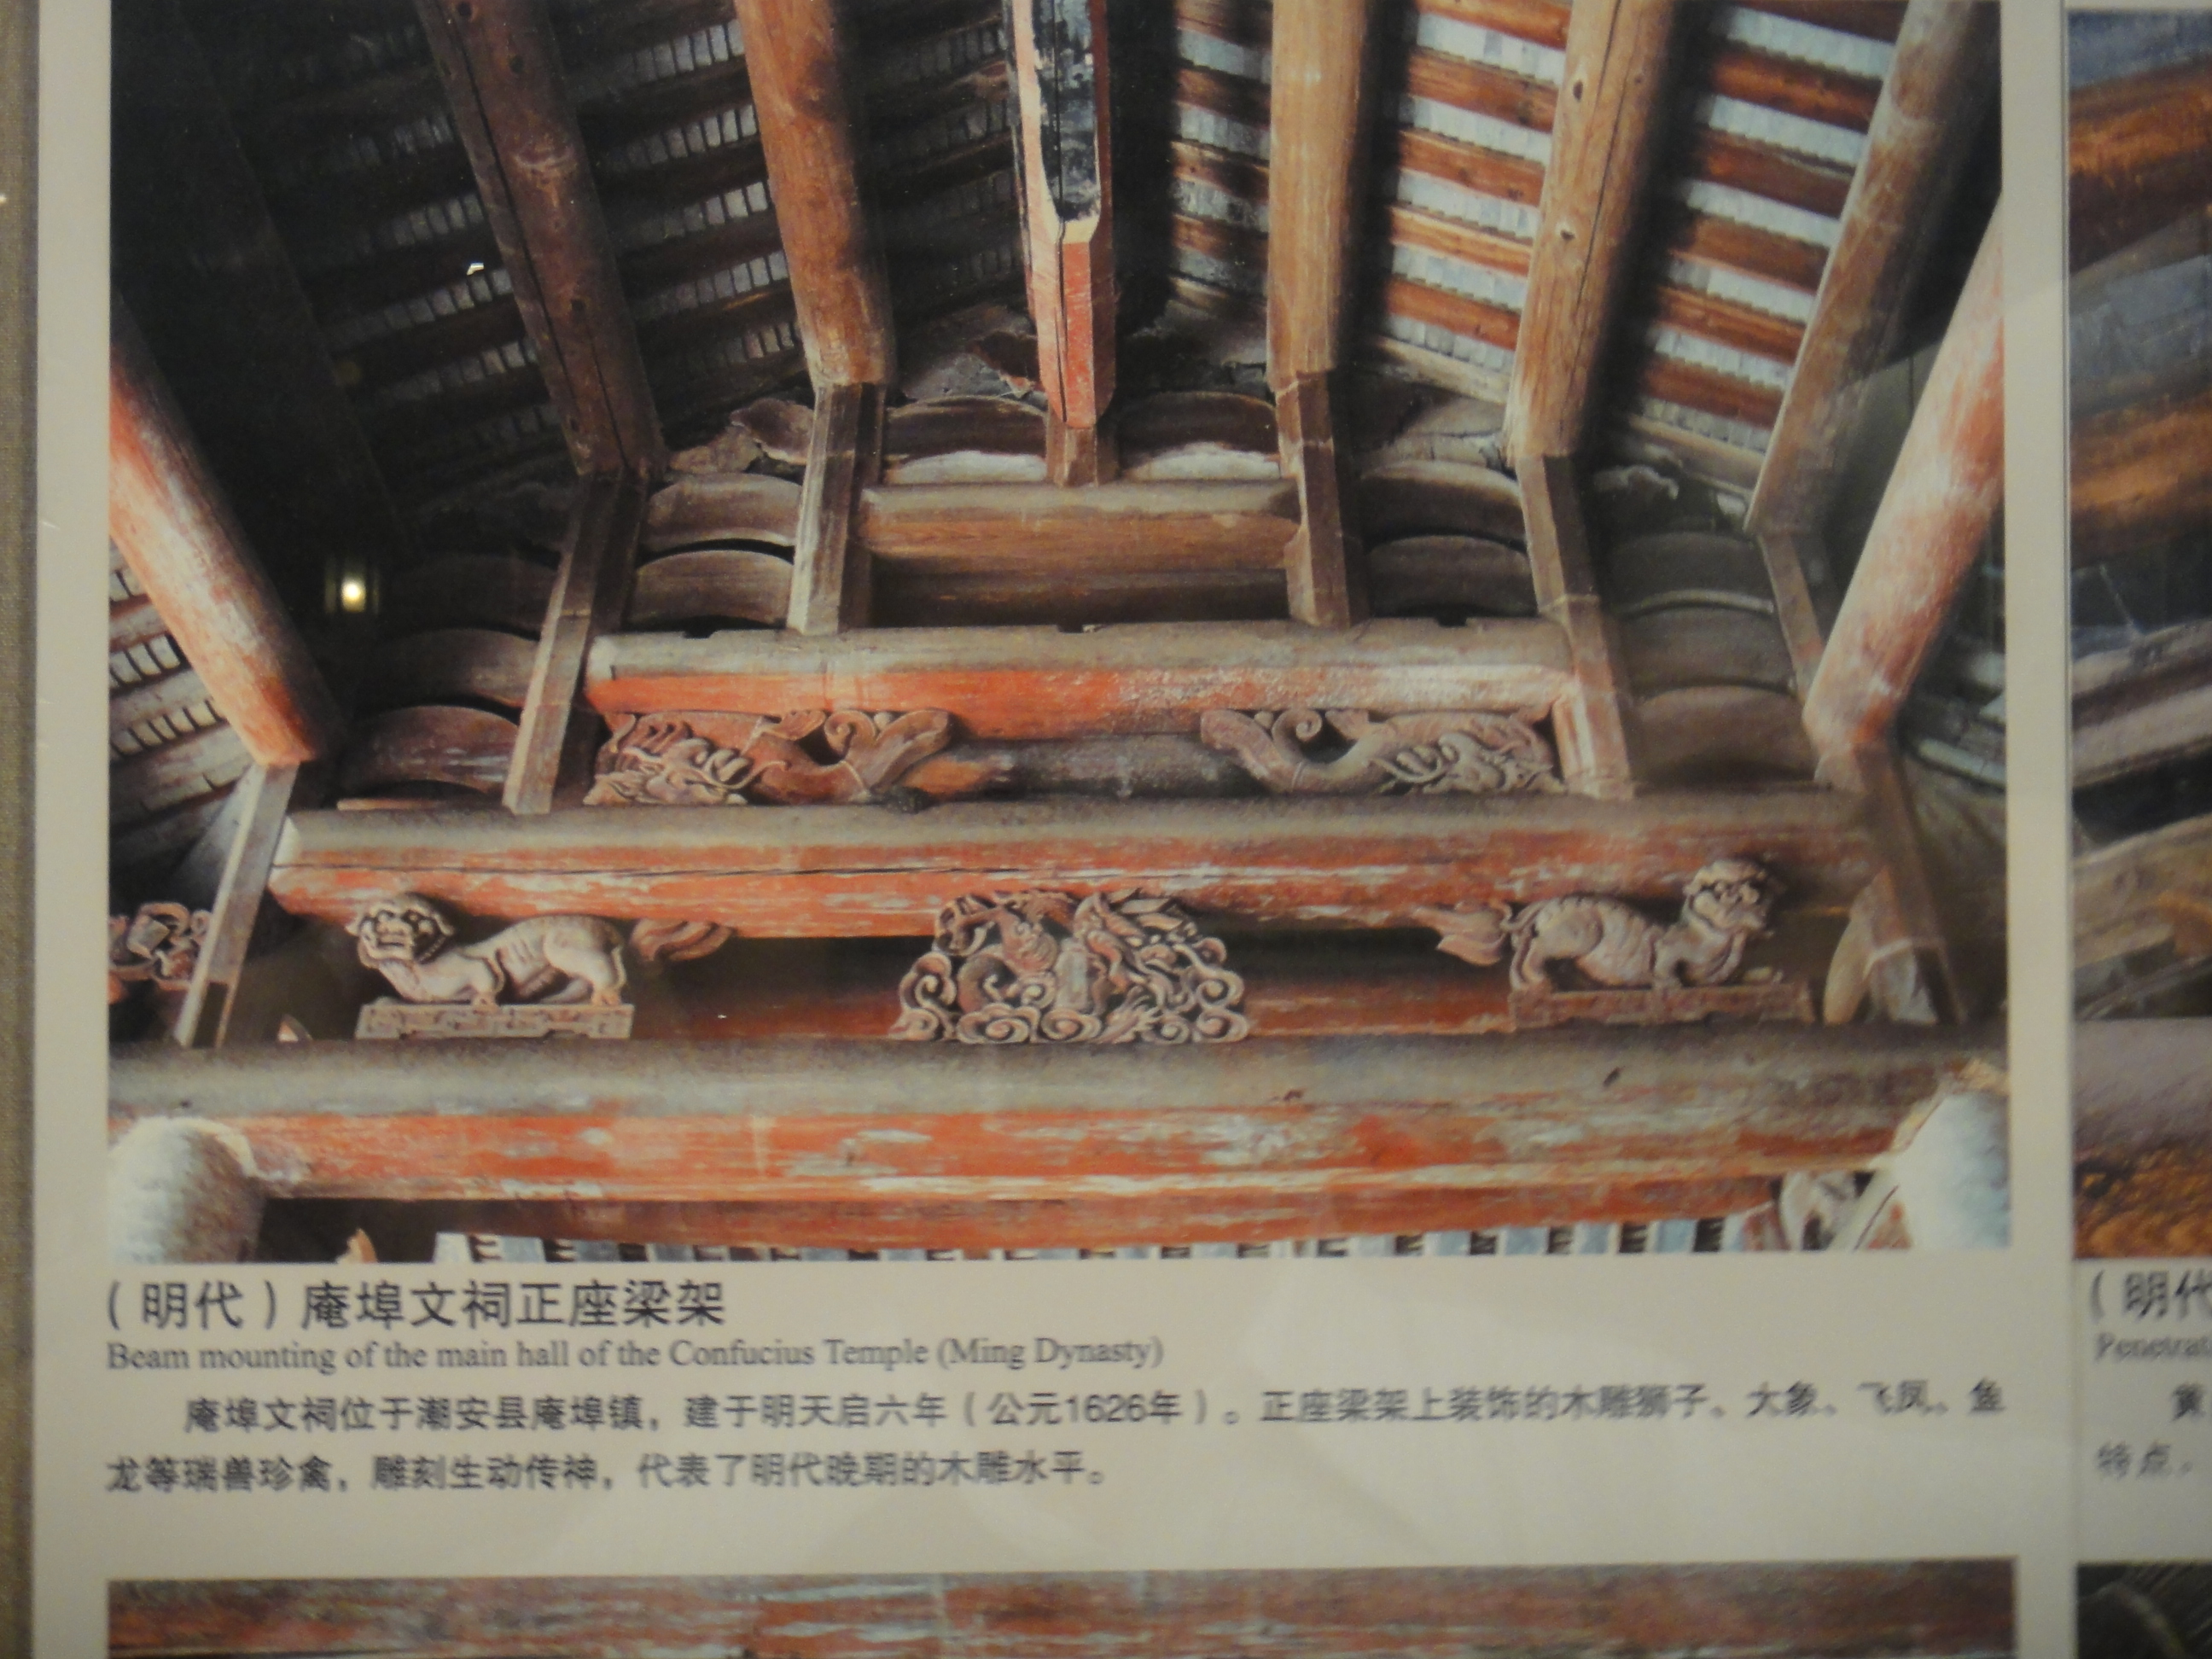 （明代）庵埠文祠正座梁架
Beam mounting of the main hall of the Confucius Temple (Ming Dynasty)
庵埠文祠位于潮安县庵埠镇，建于明天启六年（公元1626年）。正座梁架上装饰的木雕狮子、大象、飞凤、鱼
龙等瑞兽珍禽，雕刻生动传神，代表了明代晚期的木雕水平。
（明代
Penetrat
特点。